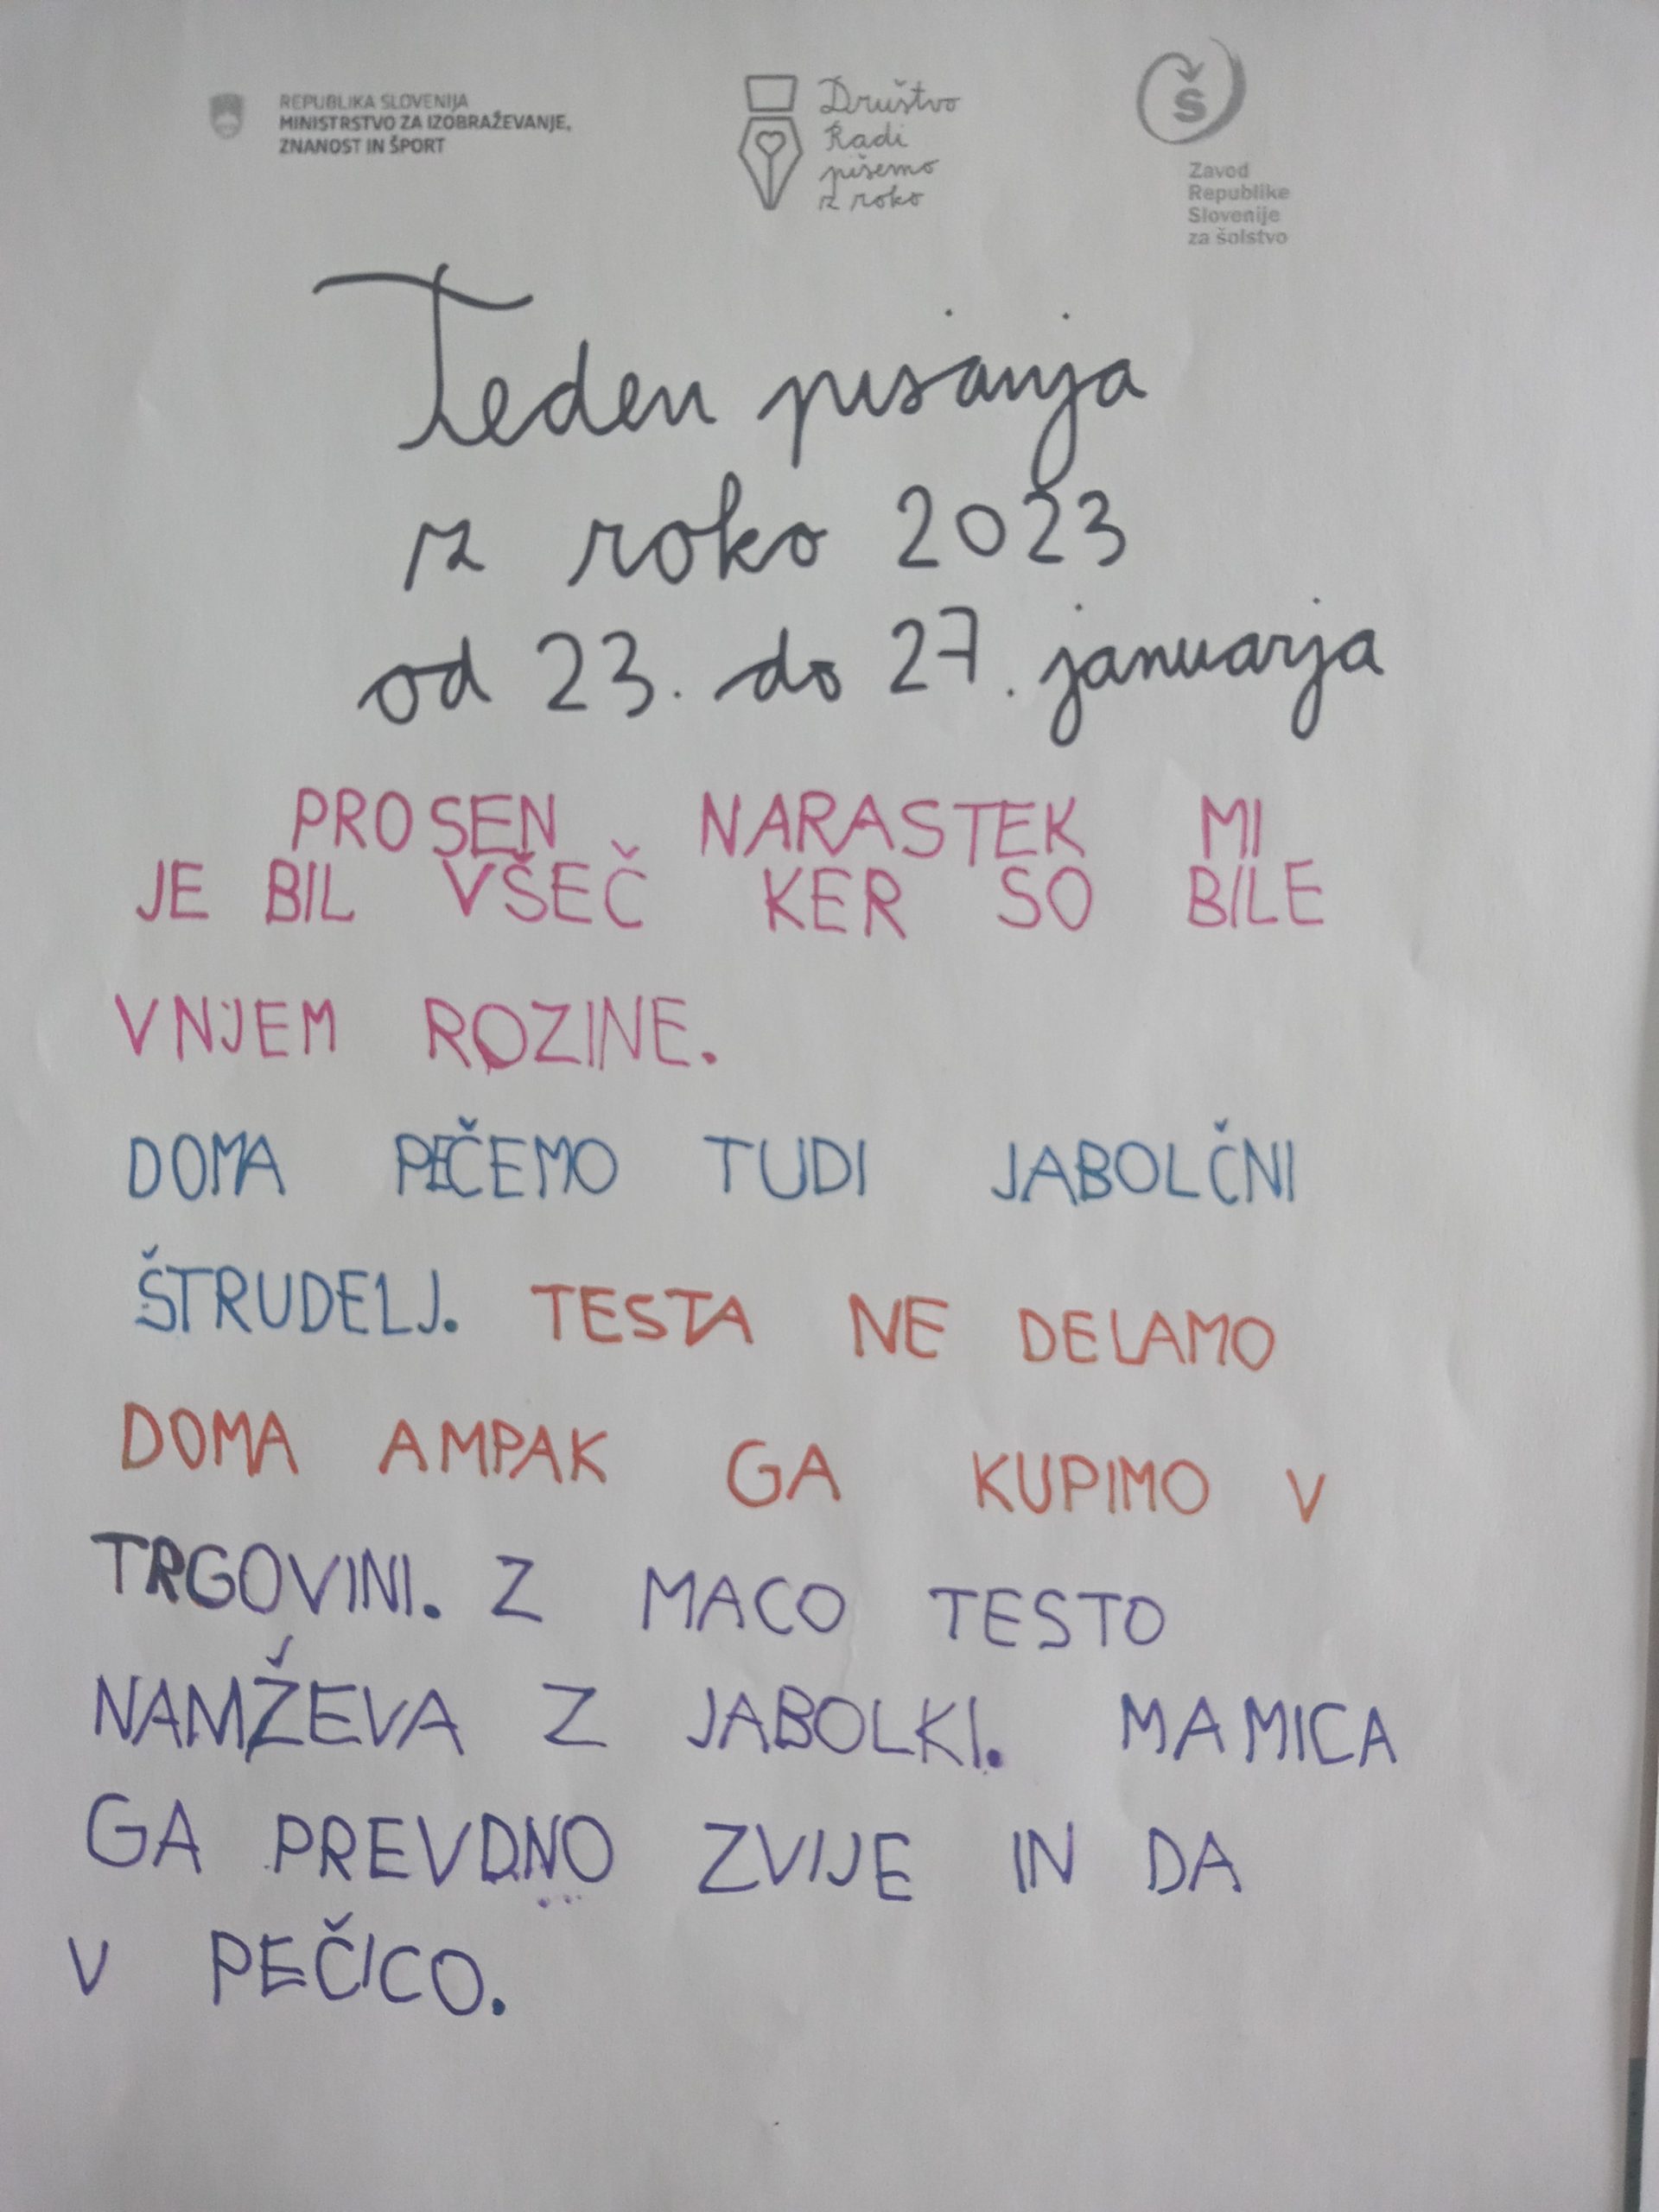 REPUBLIKA SLOVENIJA
MINISTRSTVO ZA IZOBRAŽEVANJE,
ZNANOST IN ŠPORT
Društvo
Radi
pišemo
z roko
Š
Zavod
Republike
Slovenije
za šolstvo
Teden pisanja
z roko 2023
od 23. do 27. januarja
PROSEN NARASTEK MI
JE BIL VŠEČ KER SO BILE
V NJEM ROZINE.
DOMA PEČEMO TUDI JABOLČNI
ŠTRUDELJ. TESTA NE DELAMO
DOMA AMPAK GA KUPIMO V
TRGOVINI. Z MACO TESTO
NAMŽEVA Z JABOLKI. MAMICA
GA PREVDNO ZVIJE IN DA
V PEČICO.